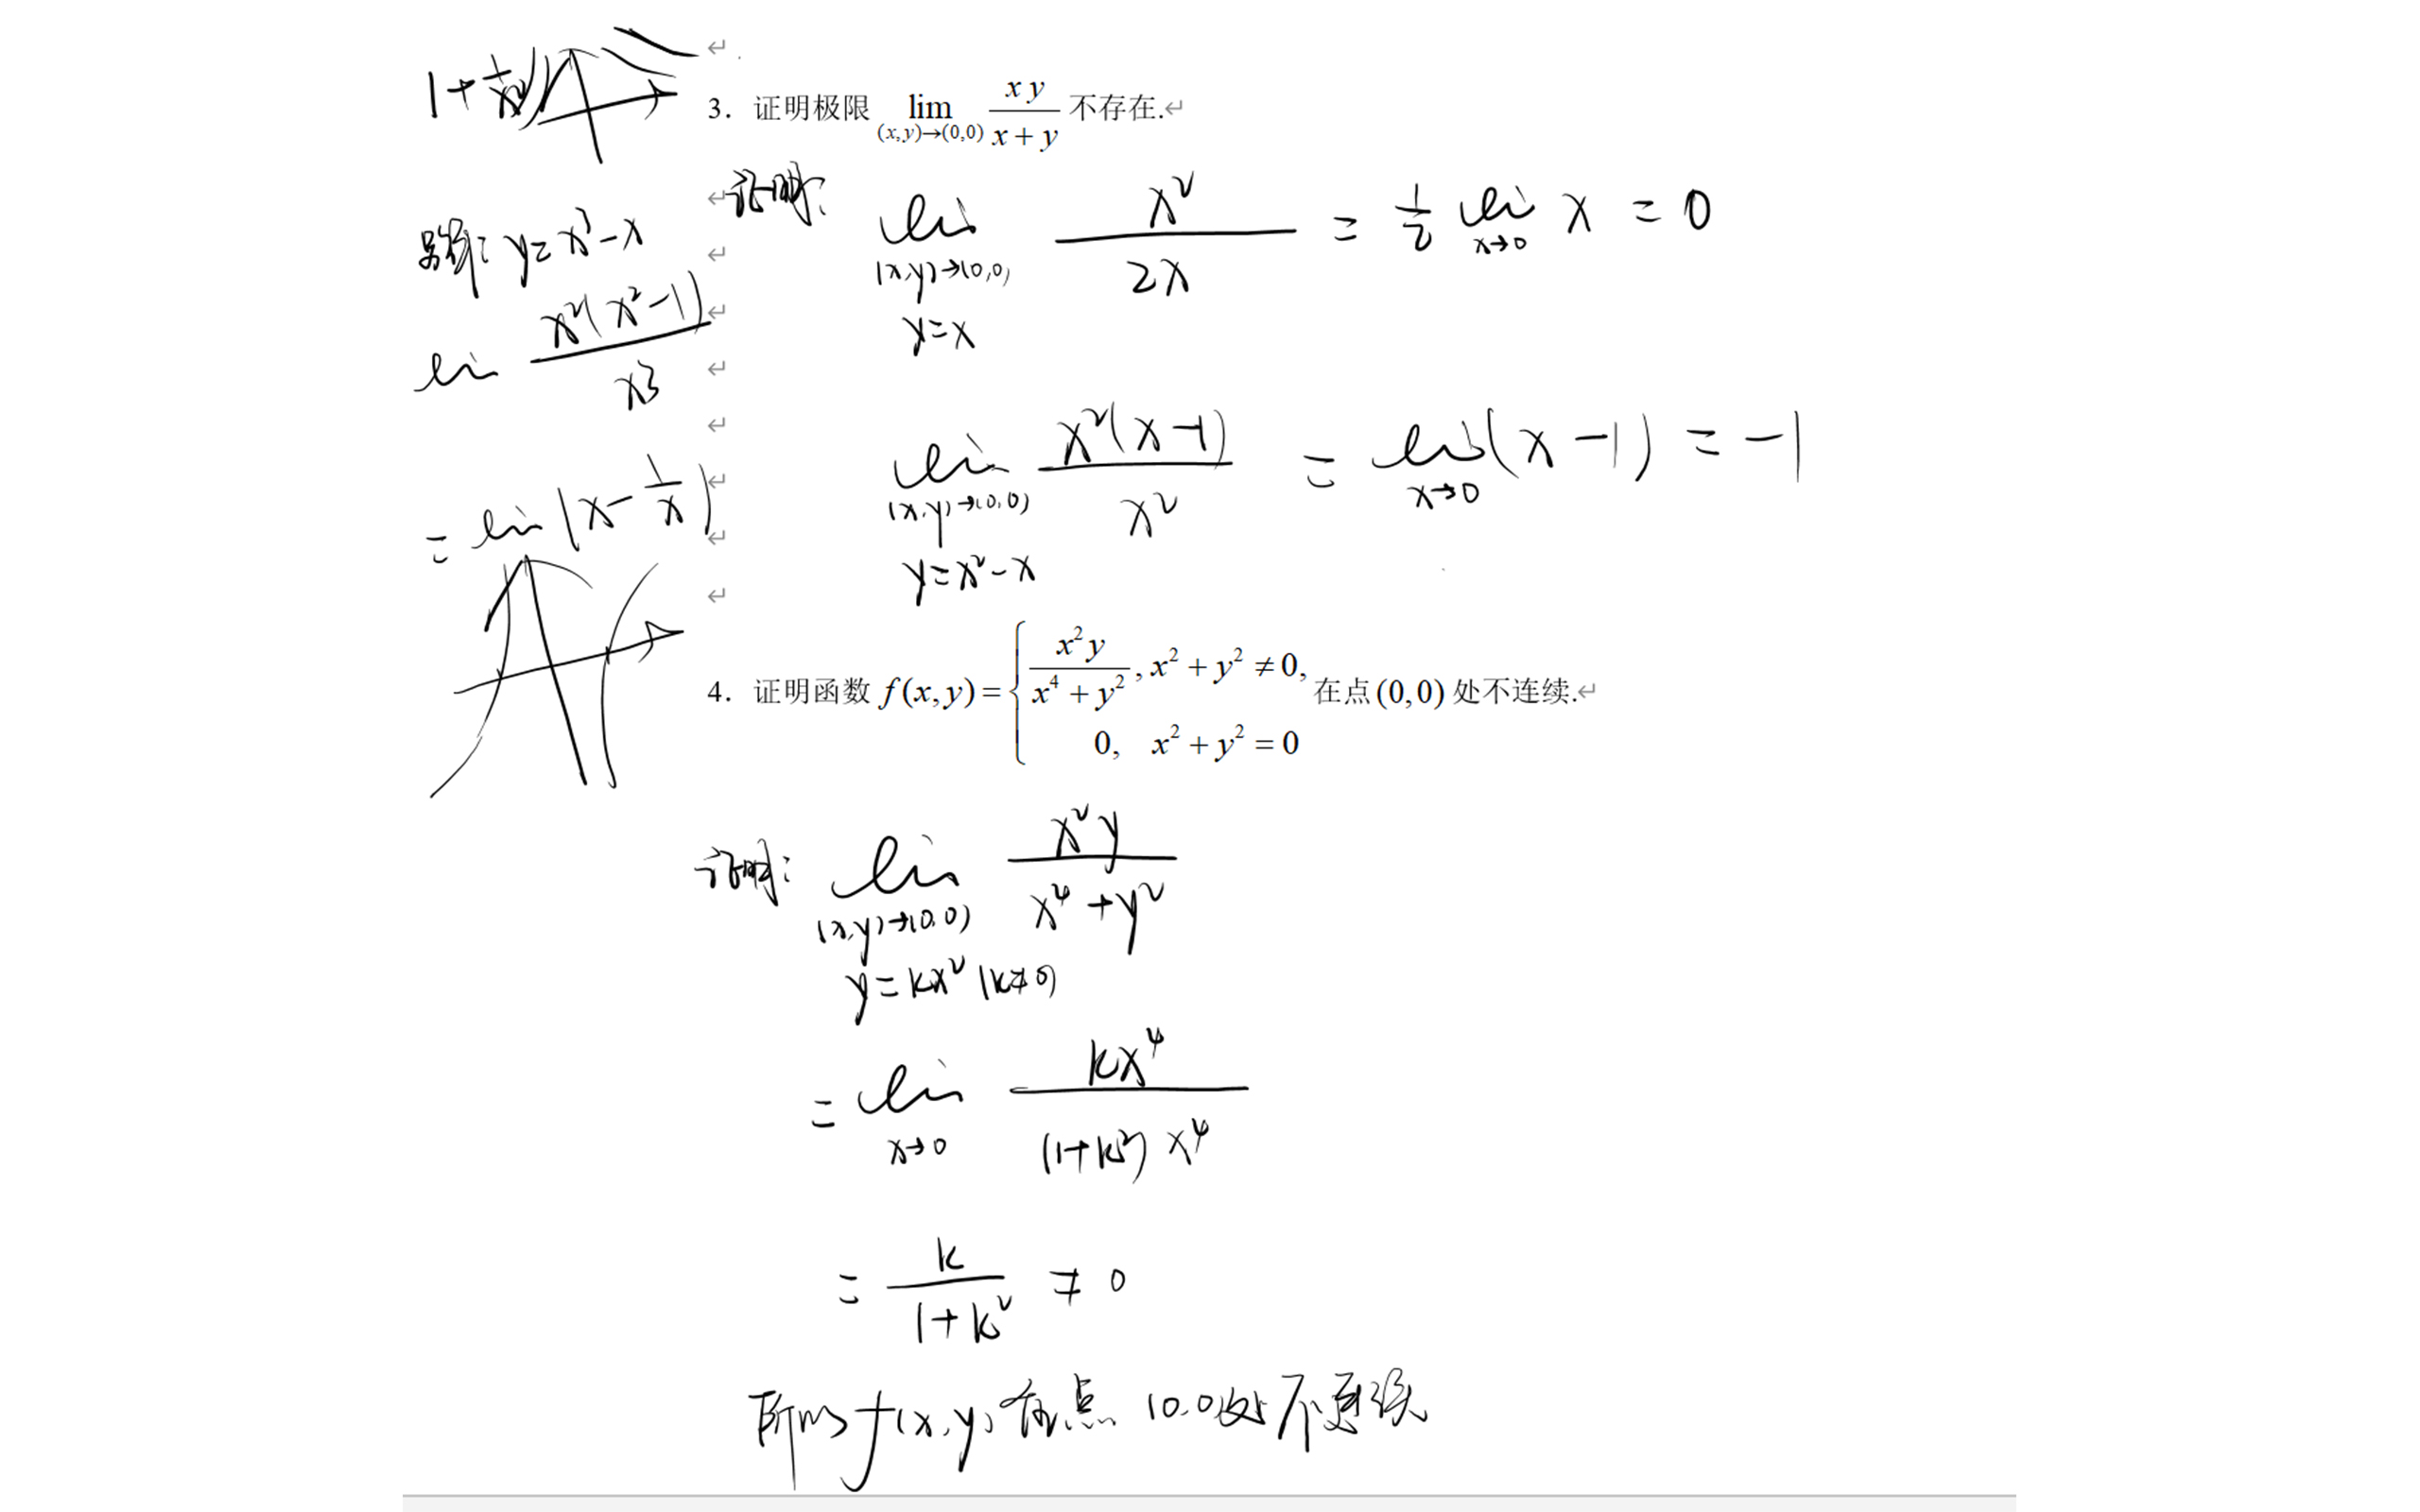 1+1/x²
3. 证明极限 lim (x,y)→(0,0) xy/(x+y) 不存在.
证明: lim (x,y)→(0,0) y=x x²/2x = 1/2 lim x→0 x = 0
y=x³-x
lim x²(x²-1)/x³
= lim (x-1/x)
lim (x,y)→(0,0) y=x²-x x²(x-1)/x² = lim x→0 (x-1) = -1
4. 证明函数 f(x,y)={ x²y/(x⁴+y²), x²+y²≠0, 0, x²+y²=0 在点(0,0)处不连续.
证明: lim (x,y)→(0,0) y=kx² (k≠0) x²y/(x⁴+y²)
= lim x→0 kx⁴/(1+k²)x⁴
= k/(1+k²) ≠ 0
所以 f(x,y) 在点 (0,0)处不连续